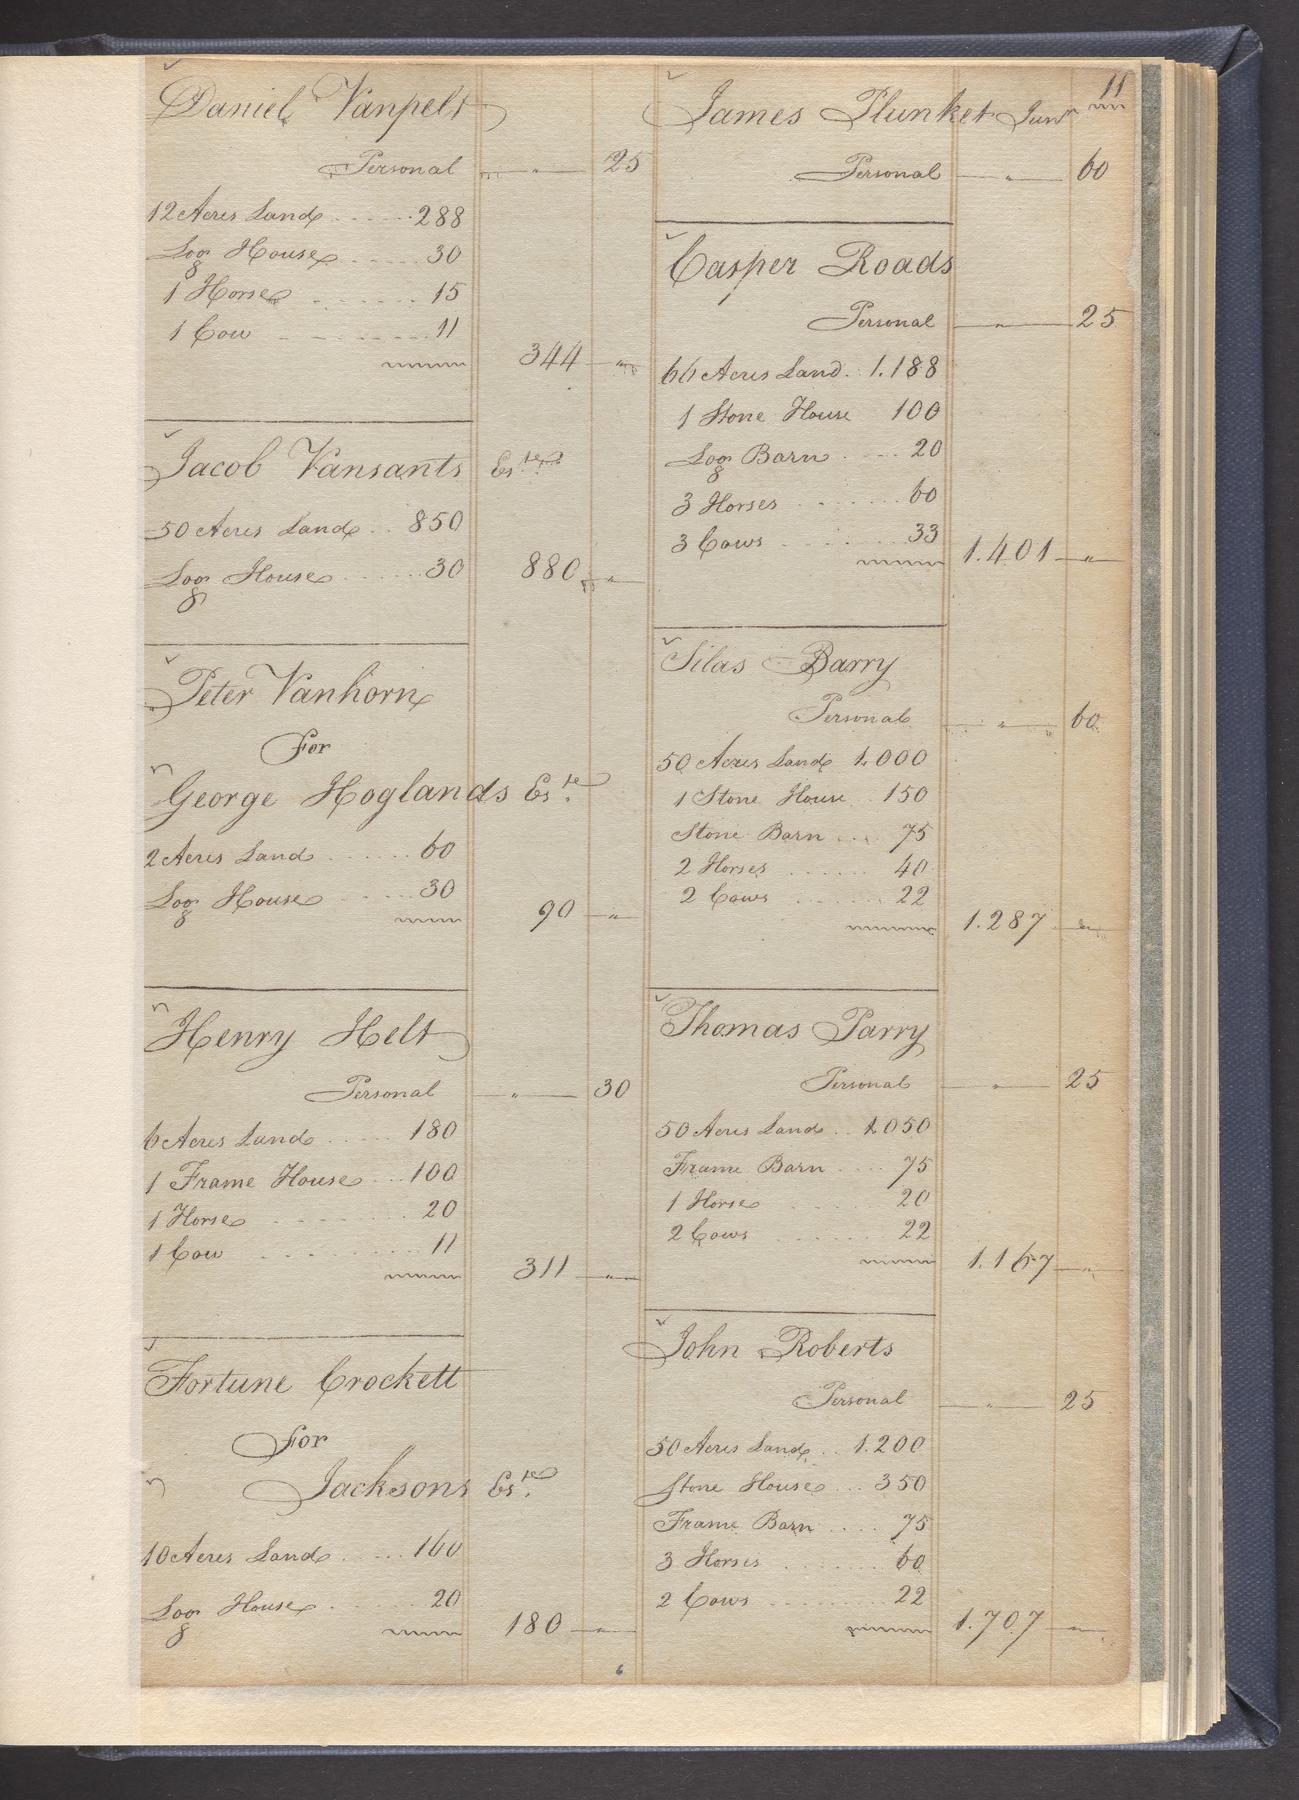 11
Daniel Vanpelt
Personal — " — 25
12 Acres Land ...... 288
Log House ..... 30
1 Horse ...... 15
1 Cow ........ 11
344 — "
Jacob Vansants Este.
50 Acres Land .. 850
Log House ...... 30 880 — "
Peter Vanhorn
For
George Hoglands Este.
2 Acres Land ...... 60
Log House ..... 30
90 — "
Henry Helt
Personal — " — 30
6 Acres Land ..... 180
1 Frame House ... 100
1 Horse ........ 20
1 Cow ......... 11
311 — "
Fortune Crockett
For
Jacksons Este.
10 Acres Land ..... 160
Log House ....... 20
180 — "
6
James Plunket Junr
Personal — " — 60
Casper Roads
Personal — " — 25
66 Acres Land .. 1.188
1 Stone House 100
Log Barn .... 20
3 Horses ...... 60
3 Cows ........ 33
1.401 — "
Silas Barry
Personal — " — 60
50 Acres Land 1.000
1 Stone House .. 150
Stone Barn ... 75
2 Horses ...... 40
2 Cows ....... 22
1.287 — "
Thomas Parry
Personal — " — 25
50 Acres Land .. 1.050
Frame Barn .... 75
1 Horse ...... 20
2 Cows ....... 22
1.167 — "
John Roberts
Personal — " — 25
50 Acres Land .. 1.200
Stone House ... 350
Frame Barn .... 75
3 Horses ....... 60
2 Cows ......... 22
1.707 — "